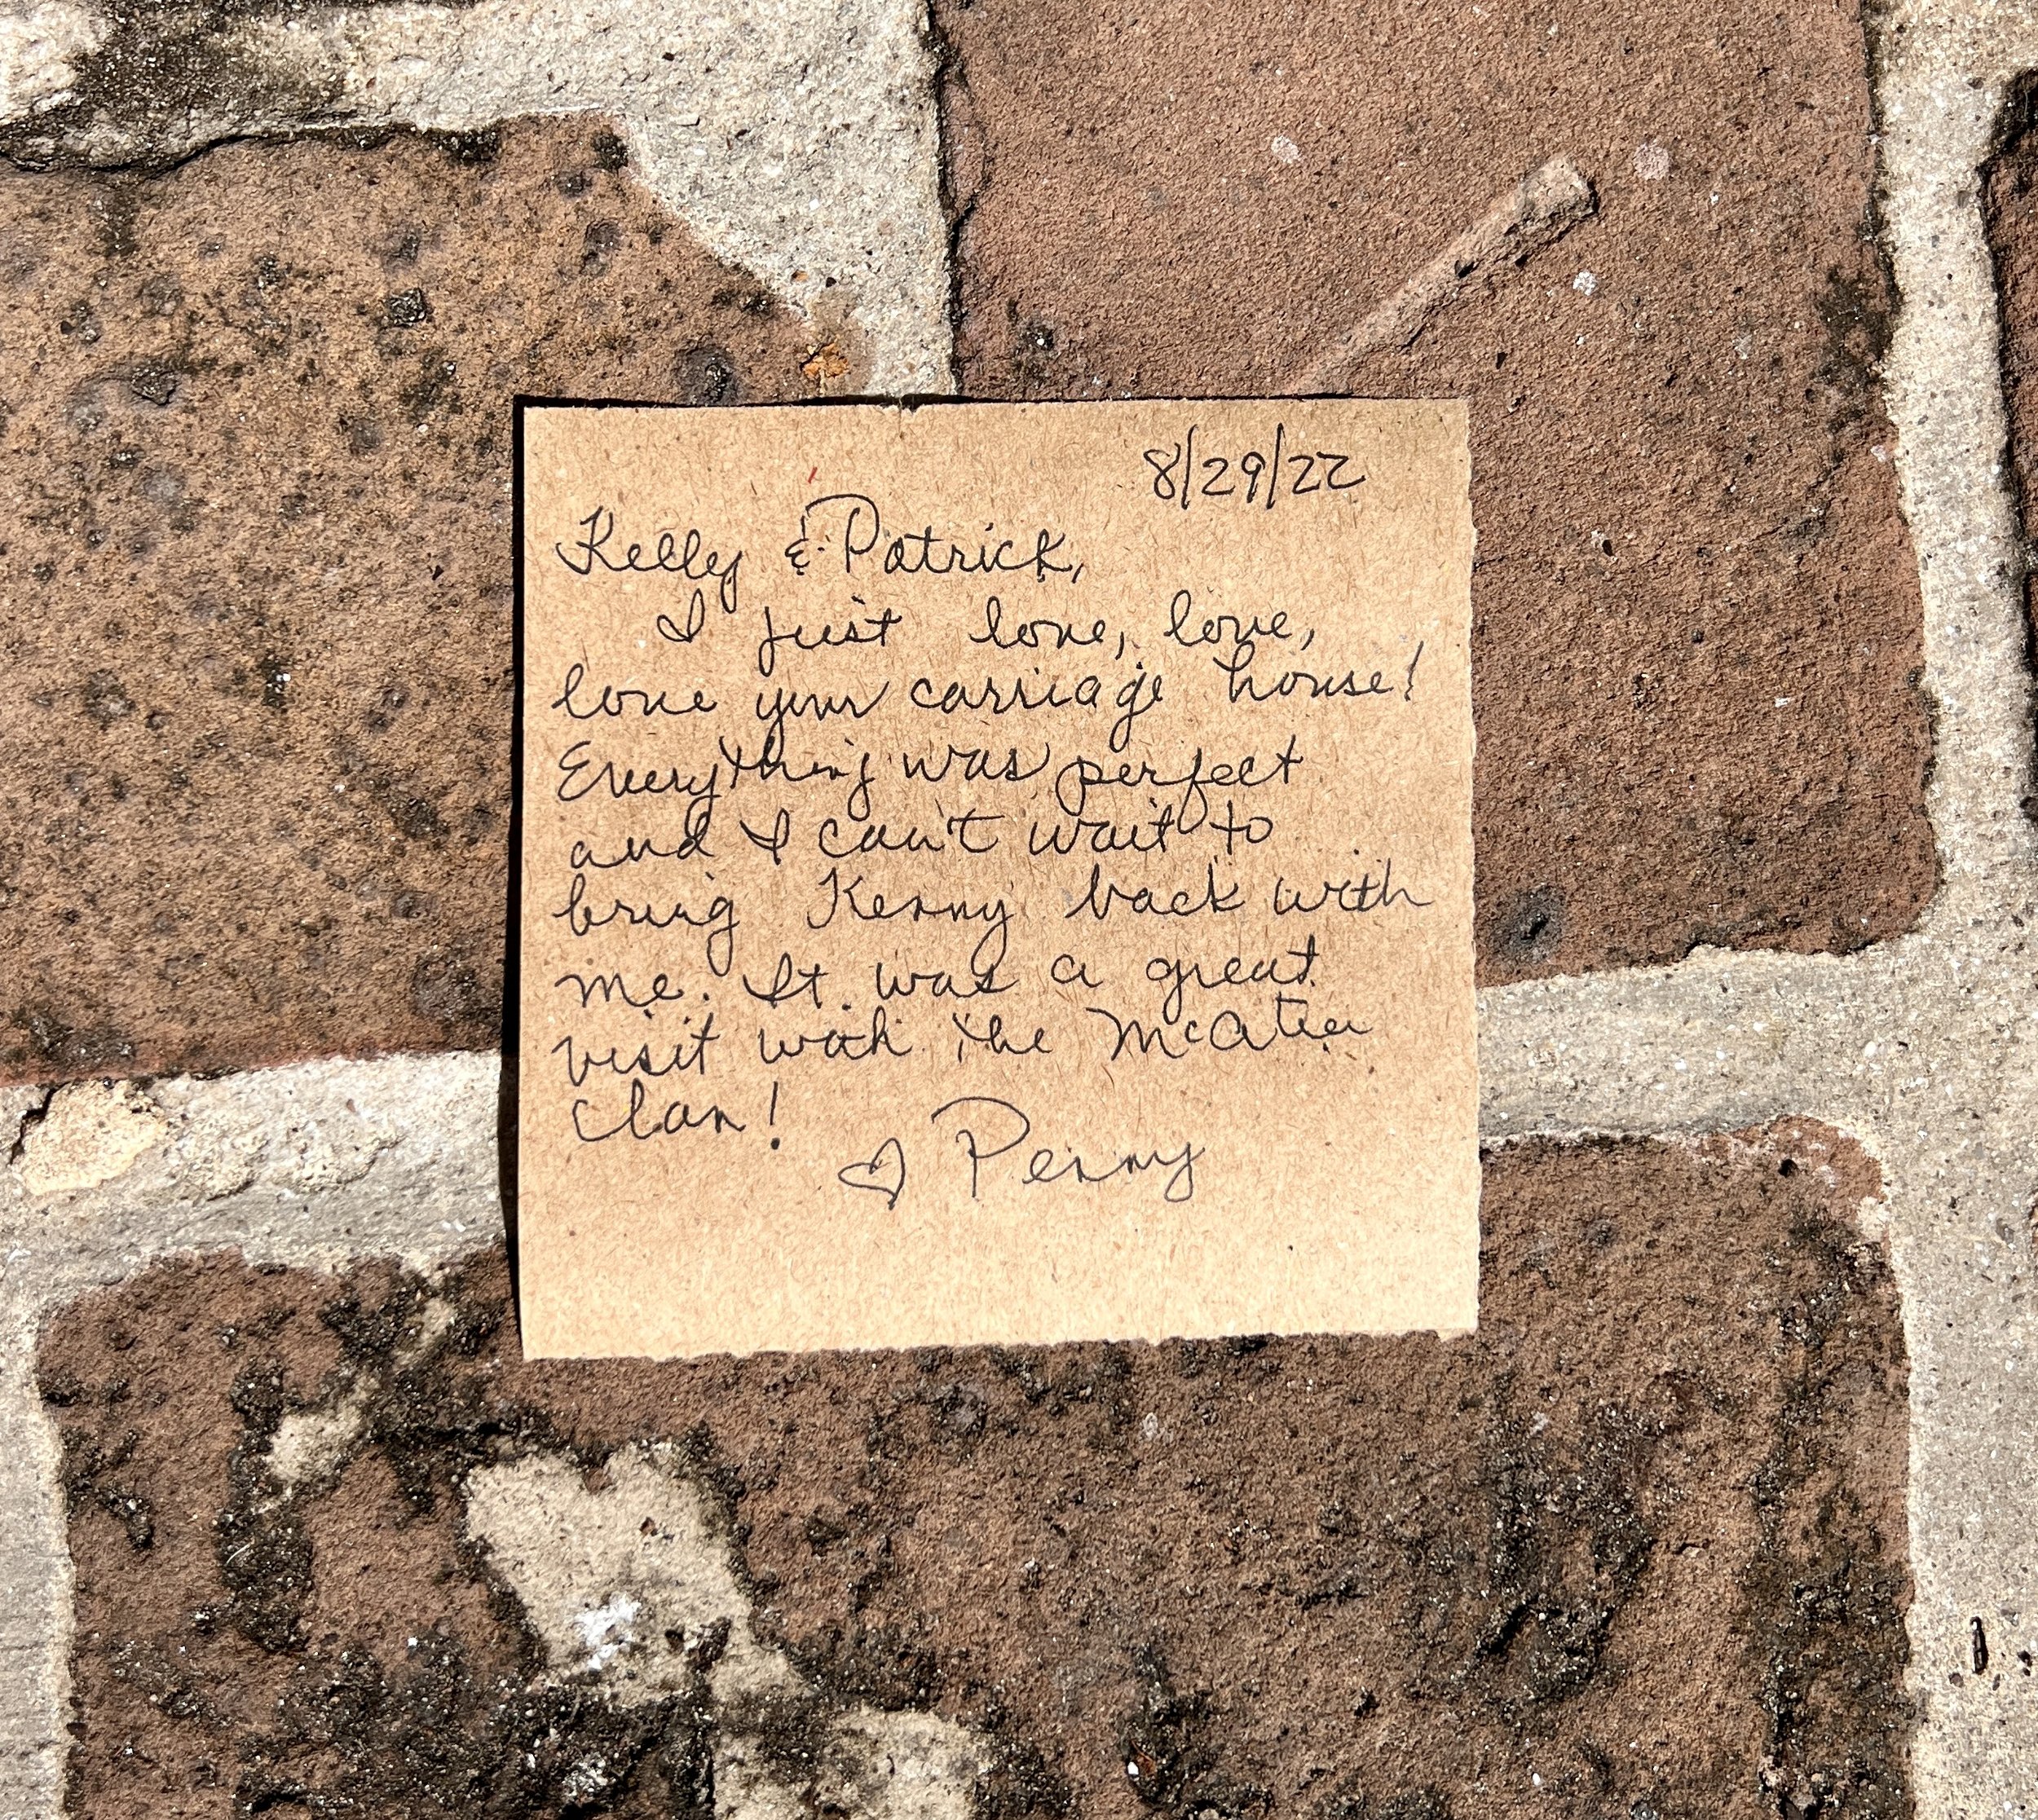 8/29/22
Kelly & Patrick,
I just love, love,
love your carriage house!
Everything was perfect
and I can't wait to
bring Kenny back with
me. It was a great
visit with the McAtee
clan!
♡ Penny